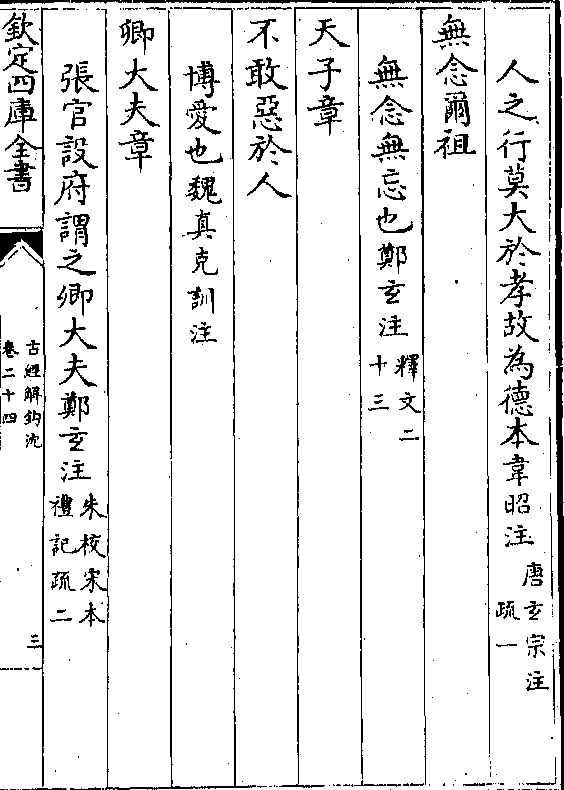 人之行莫大於孝故為德本韋昭注唐玄宗注
疏一
無念爾祖
無念無忘也鄭玄注釋文二
十三
天子章
不敢惡於人
博愛也魏真克訓注
卿大夫章
張官設府謂之卿大夫鄭玄注朱校宋本
禮記疏二
欽定四庫全書
古經解鈎沈
卷二十四
三